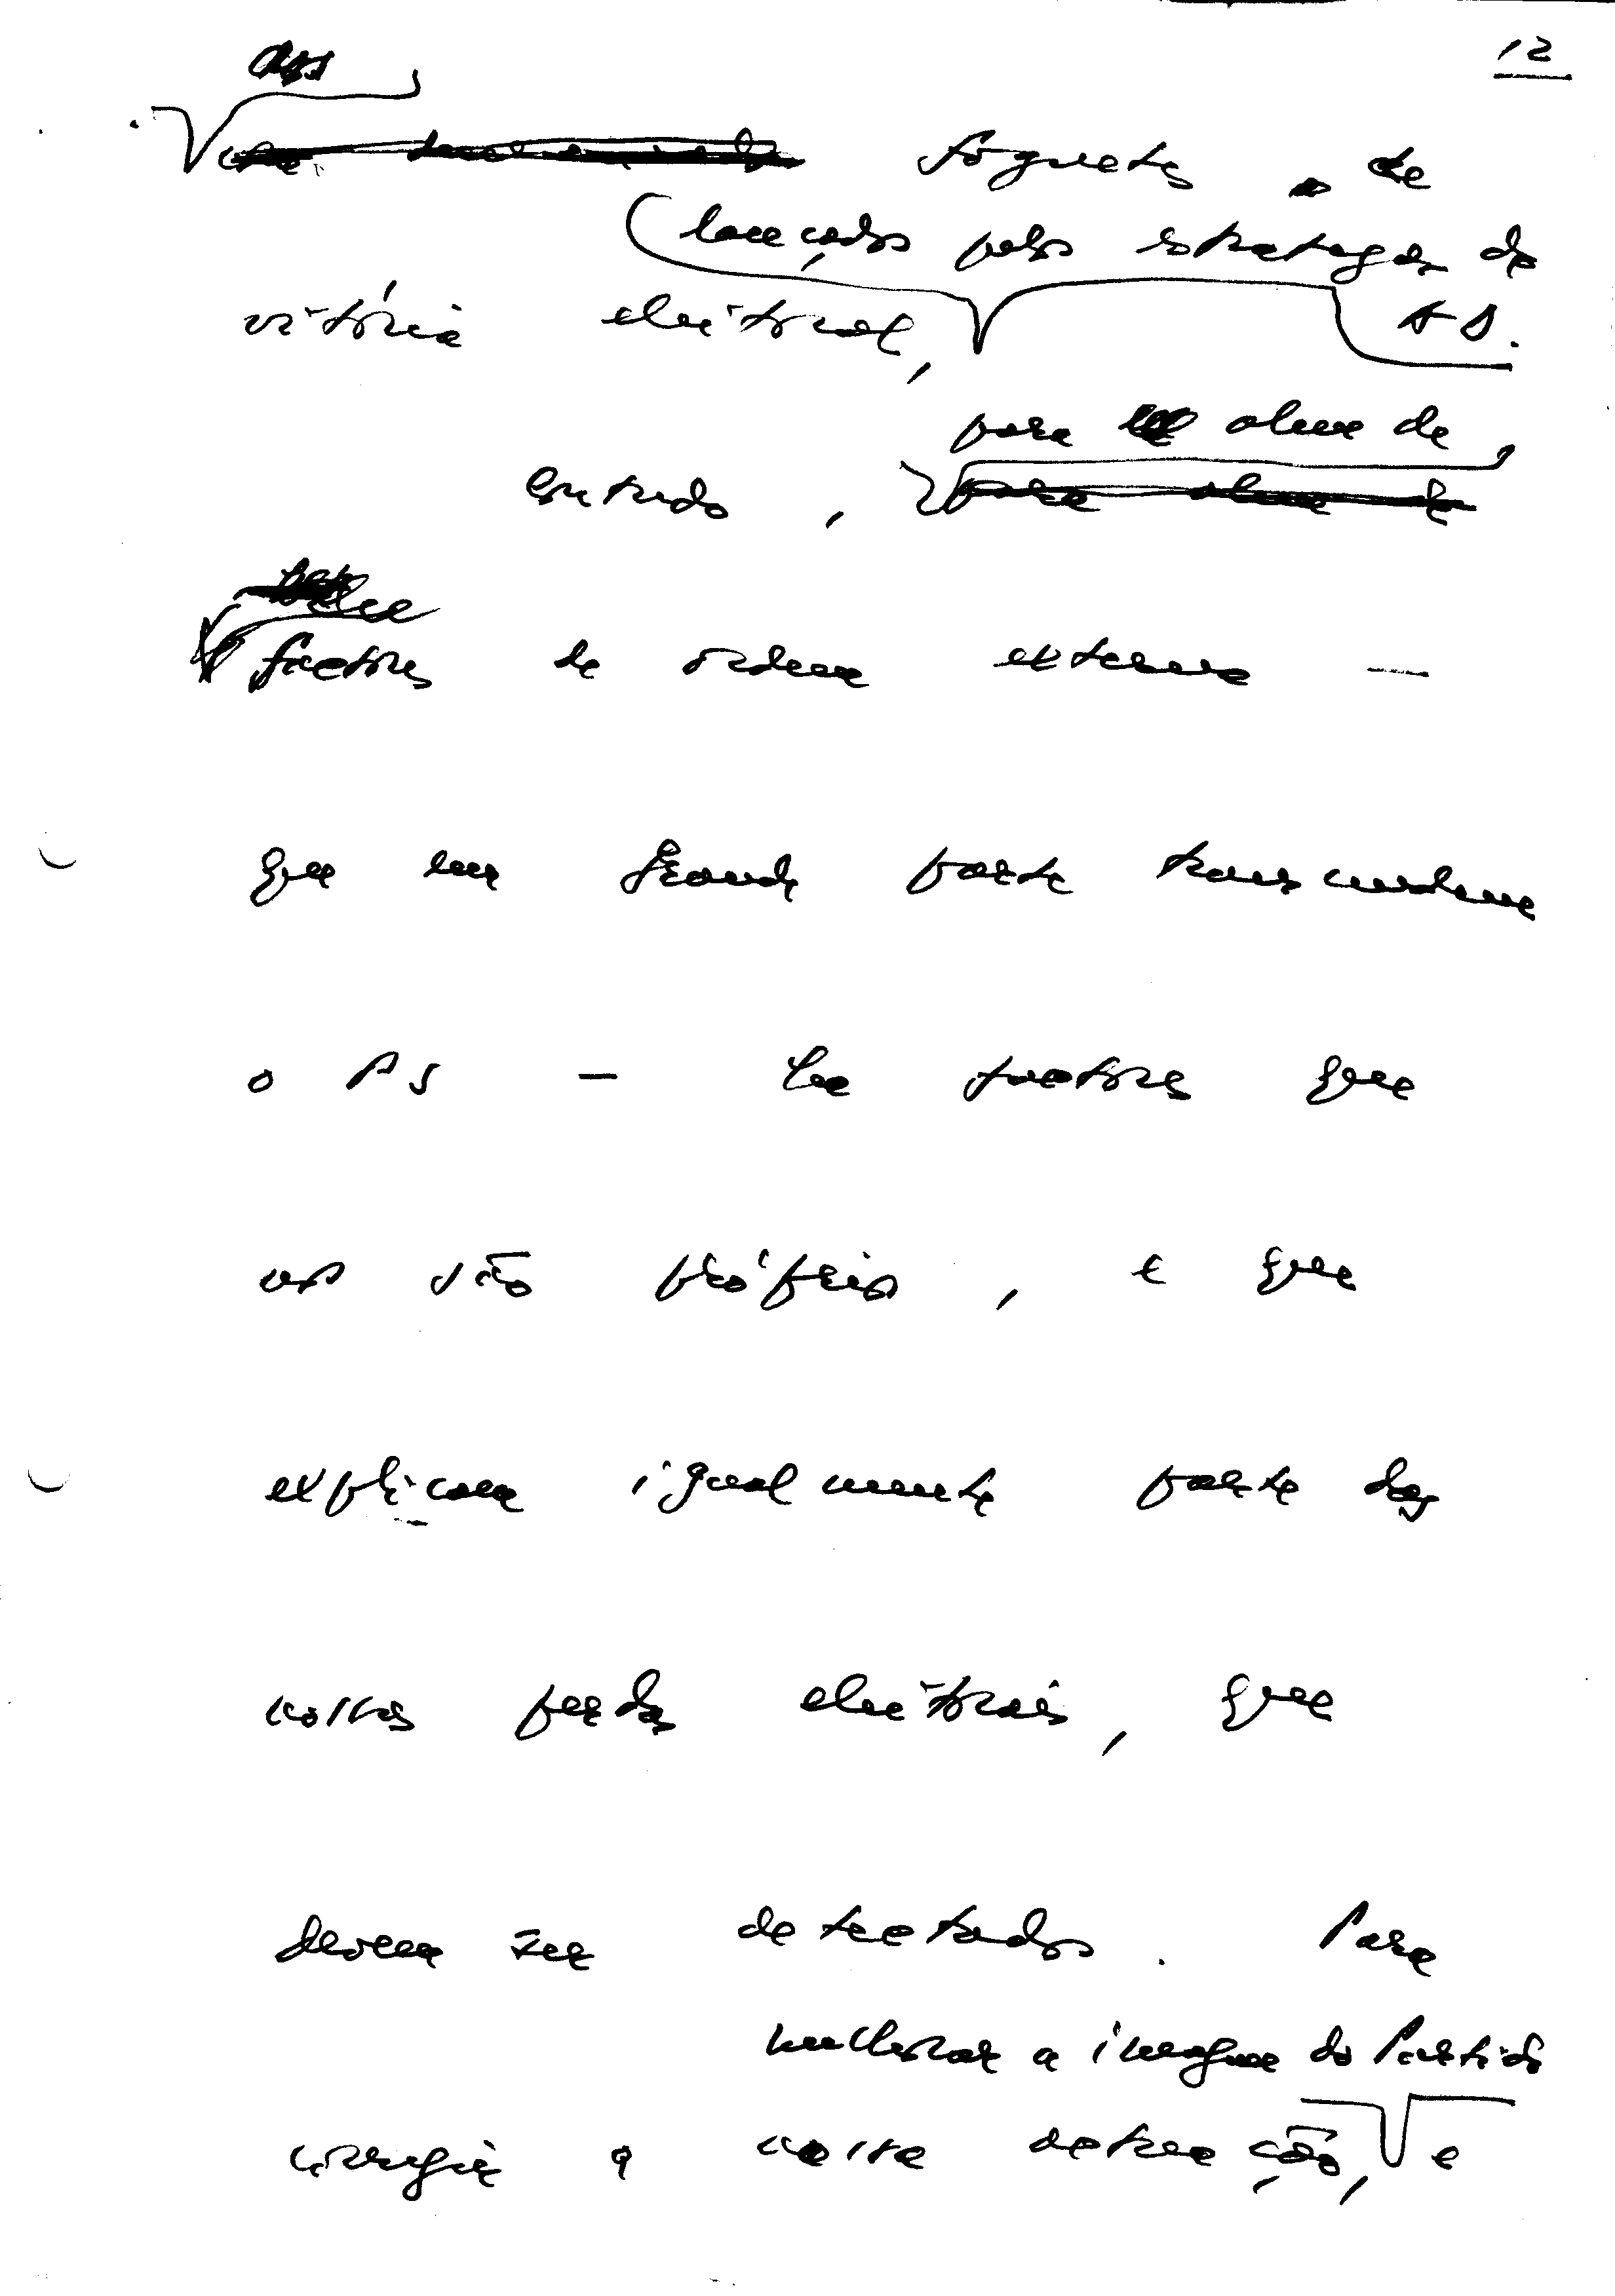 12
aos
foguetes de
lançados pelos estrategas da
vitória eleitoral, AD.
para além de
Contudo,
factores de ordem externa —
que em grande parte transcendem
o PS — há factores que
nos são próprios, e que
explicam igualmente parte das
nossas perdas eleitorais, que
devem ser detectados. Para
melhorar a imagem do Partido
corrigir a nossa actuação, e